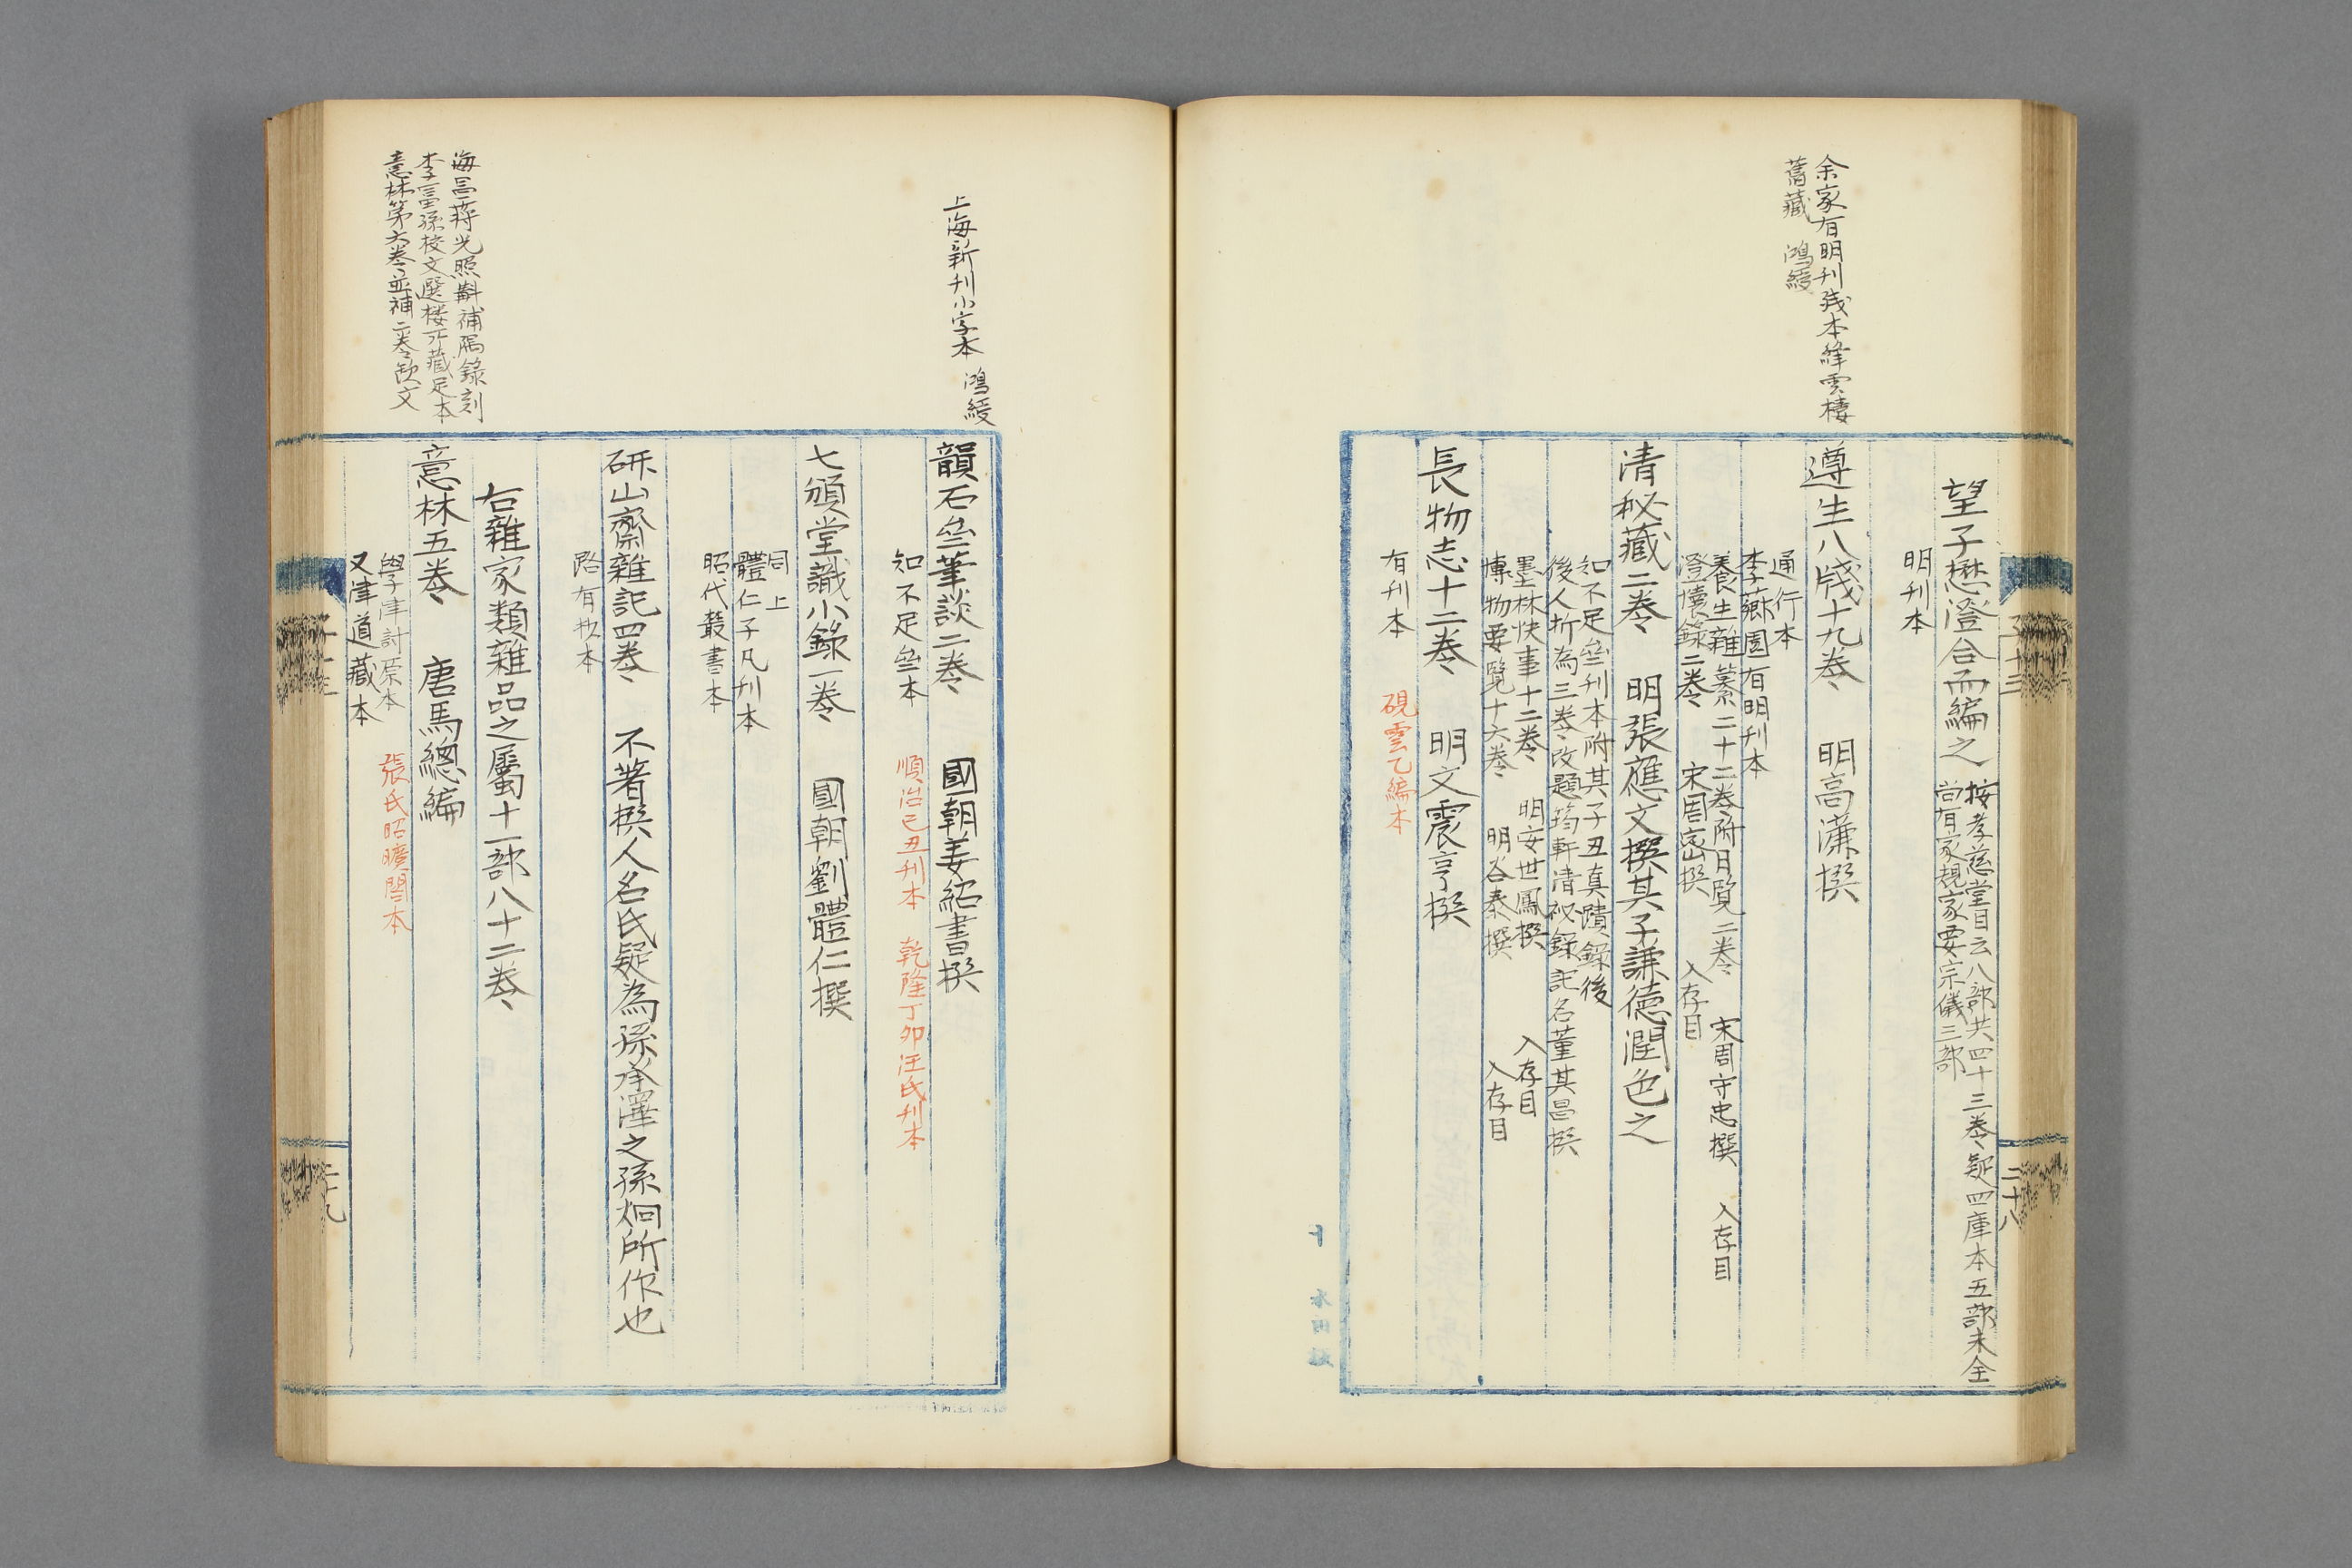 余家有明刊殘本絳雲樓
舊藏　鴻綬
望子懋澄合而編之
按孝慈堂目云八部共四十三卷疑四庫本五部未全
尚有家規家要宗儀三部
明刊本
遵生八牋十九卷　明高濂撰
通行本
李薌園有明刊本
養生雜纂二十二卷附月覽二卷　宋周守忠撰　入存目
澄懷錄二卷　宋周密撰　入存目
清秘藏二卷　明張應文撰其子謙德潤色之
知不足叁刊本附其子丑真蹟錄後
後人折為三卷改題筠軒清祕錄託名董其昌撰
墨林快事十二卷　明安世鳳撰　入存目
博物要覽十六卷　明谷泰撰　入存目
長物志十二卷　明文震亨撰
有刊本　硯雲乙編本
子十三
二十八
上海新刊小字本　鴻綬
韻石叁筆談二卷　國朝姜紹書撰
知不足叁本　順治己丑刊本　乾隆丁卯汪氏刊本
七頌堂識小錄一卷　國朝劉體仁撰
同上
體仁子凡刊本
昭代叢書本
研山齋雜記四卷　不著撰人名氏疑為孫承澤之孫炯所作也
路有抄本
右雜家類雜品之屬十一部八十二卷
海昌蔣光照斠補隅錄刻
李富孫校文選樓所藏足本
意林第六卷並補二卷缺文
意林五卷　唐馬總編
學津討原本　張氏昭曠閣本
又津道藏本
子十三
二十九